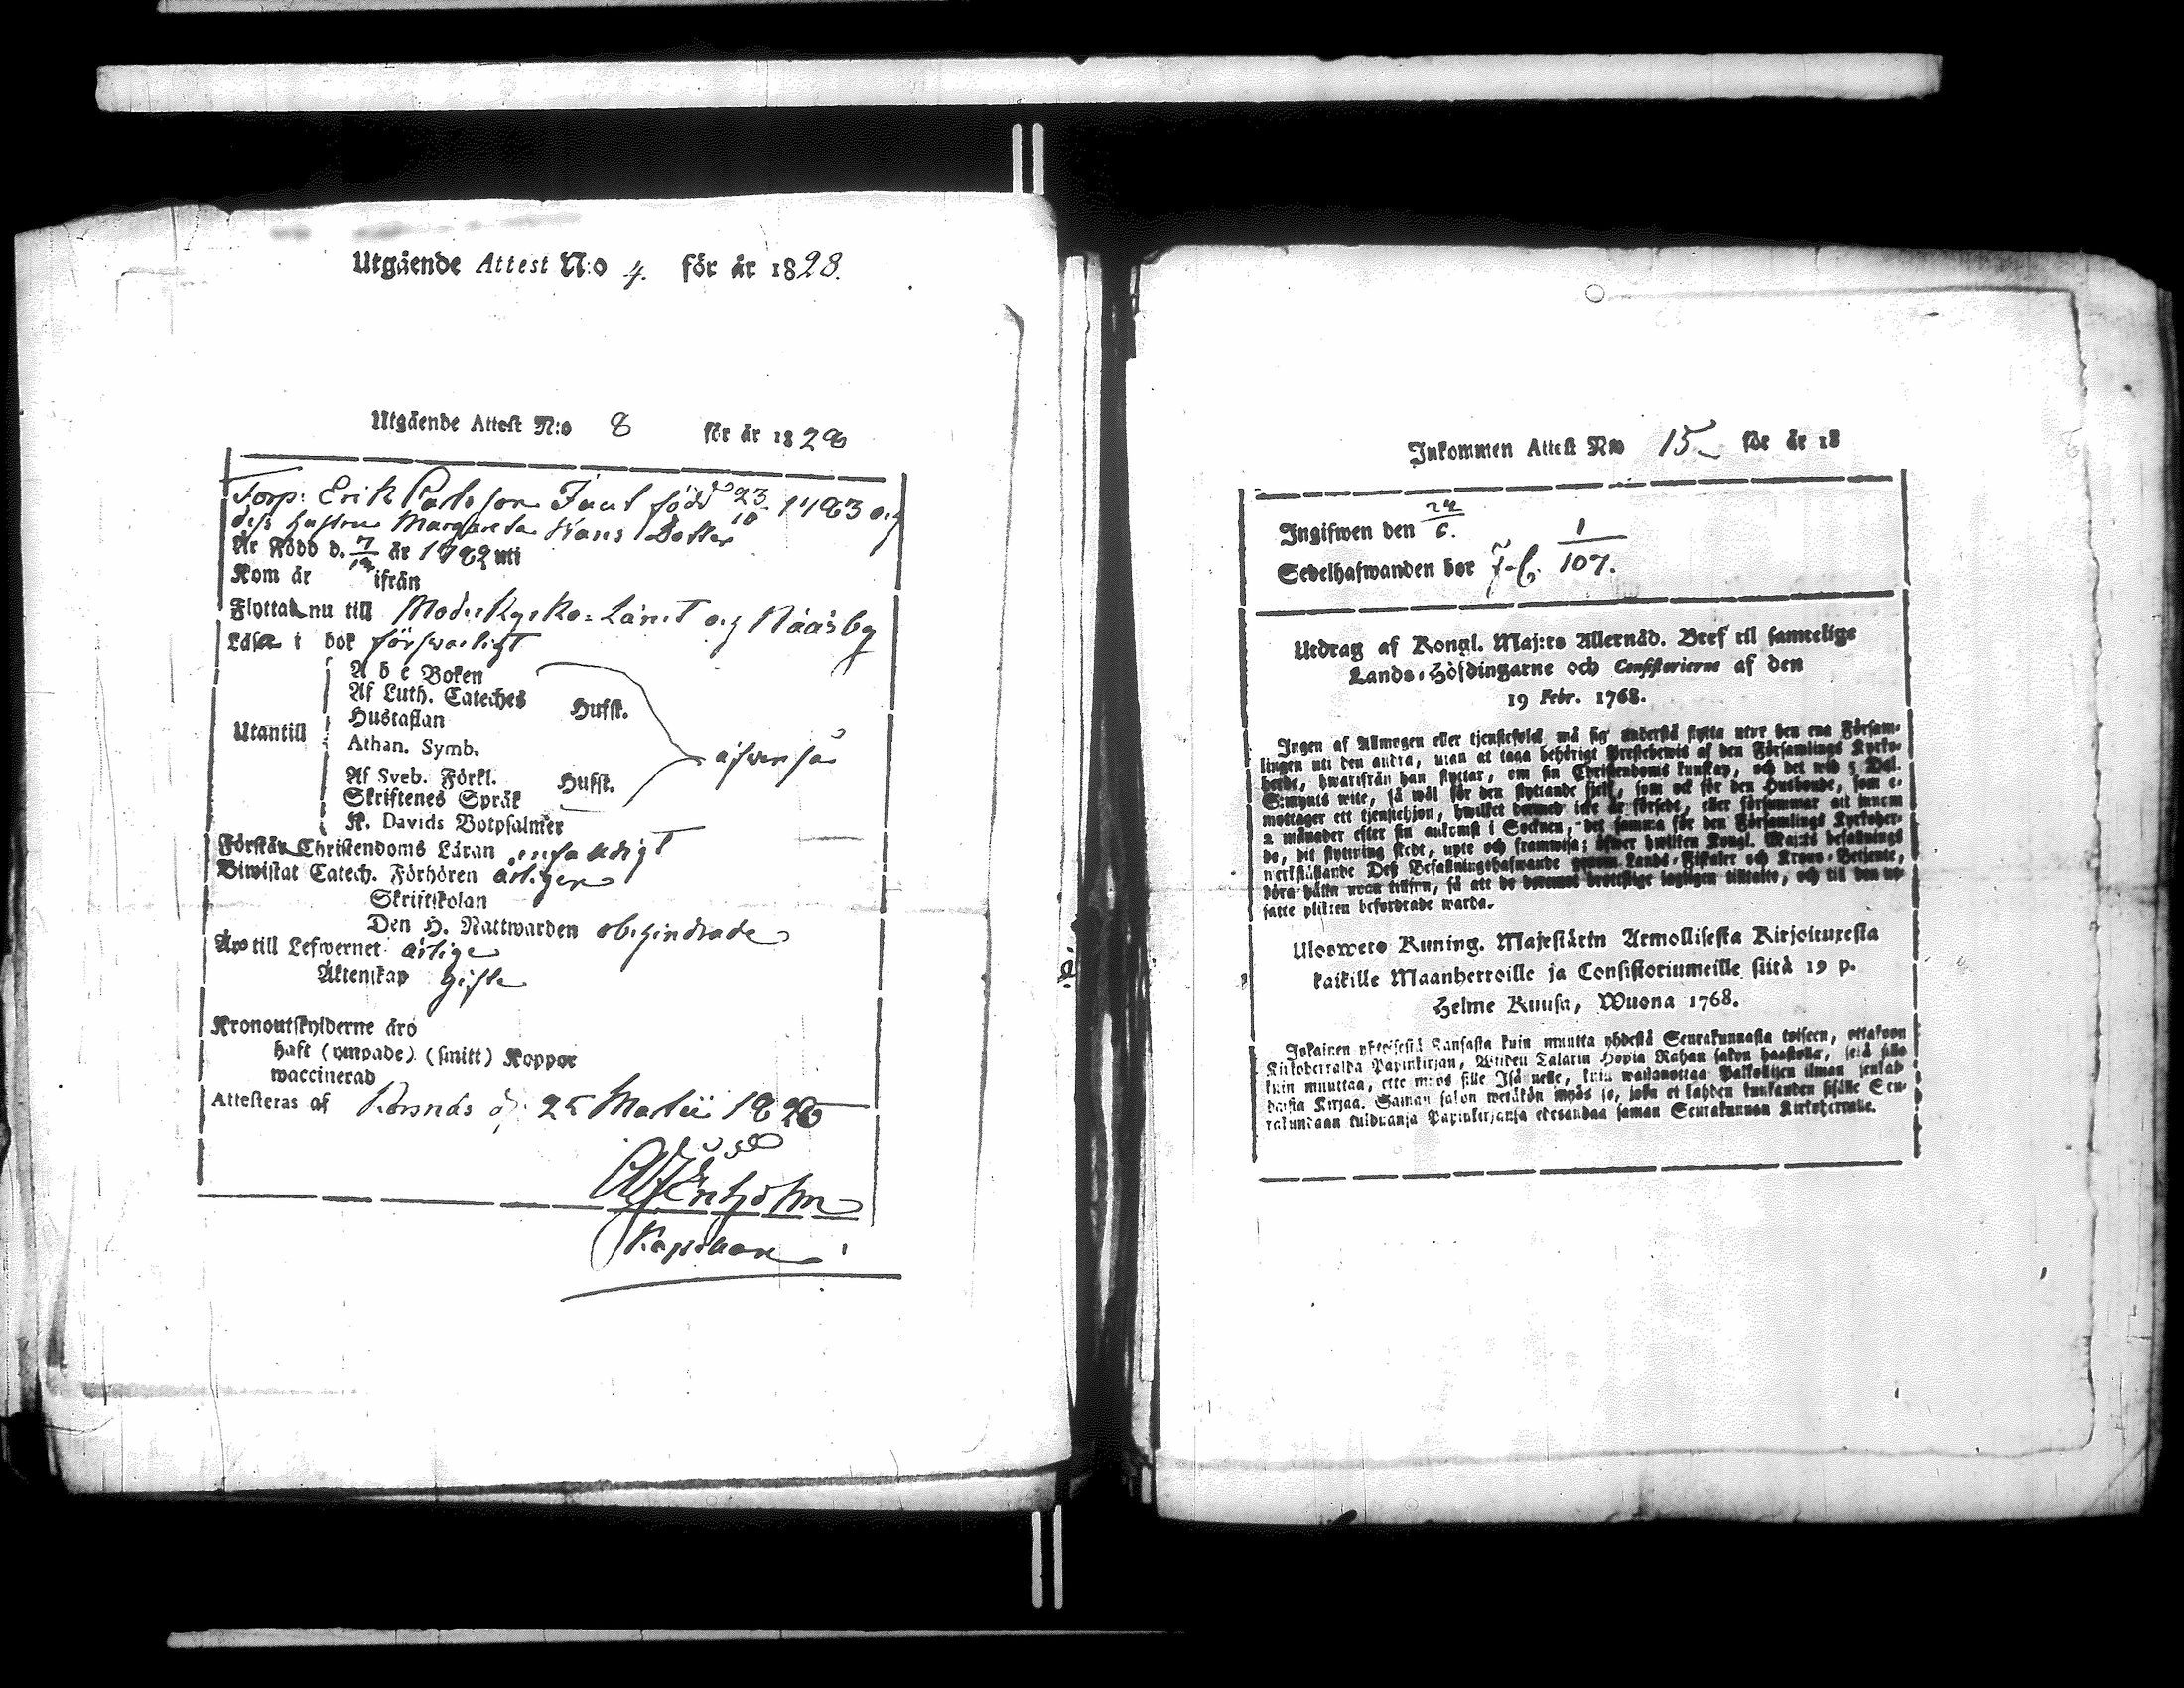 Utgående Attest N:o 4. för år 1828.
Utgående Attest N:o 8 för år 1828
Torp. Erik född 23 10
dess hustru Margareta Hans Dotter
Är Född d. 7 år 1782 uti
Kom år ifrån
Flytta nu till Moderkyrko och
Läsa i bok försvarligt
A b c Boken
Af Luth. Cateches Hufst.
Hustaflan
Utantill
Athan. Symb. äfven så
Af Sveb. Förkl. Hufst.
Skriftenes Språk
K. Davids Botpsalmer
Förstå Christendoms Läran enfaldigt
Biwistat Catech. Förhören
Skriftskolan
Den H. Nattwarden obehindrade
Äro till Lefwernet ärlige
Äktenskap gifte
Kronoutskylderne äro
haft (ympade) (smitt) Koppor
waccinerad
Attesteras af Korsnäs d. 25 Martii 1828
Kapellan
Inkommen Attest N:o 15 för år 18
Ingifwen den 24/6.
Sedelhafwanden bor 1/107.
Utdrag af Kongl. Maj:ts Allernåd. Bref til samtelige
Lands-Höfdingarne och Consistorierne af den
19 Febr. 1768.
Ingen af Allmogen eller tjenstefolck må sig understå flytta utur den ena Försam-
lingen uti den andra, utan at taga behörigt Prestebewis af den Församlings Kyrko-
herde, hwarifrån han flyttar, om sin Christendoms kunskap, och det wid 5 Dal.
S:mynts wite, så wäl för den flyttande sjelf, som ock för den Husbonde, som e-
mottager ett tjenstehjon, hwilket dermed icke är försedt, eller försummar att innom
2 månader efter sin ankomst i Socknen, det samma för den Församlings Kyrkoher-
de, dit flyttning skedt, upte och framwisa; öfwer hwilken Kongl. Maj:ts befallnings
werkställande Deß Befallningshafwande genom Lands-Fiskaler och Krono-Betjente,
böra hålla noga tillsyn, så att de deremot brottslige lagligen tilltalte, och till den ut-
satte plikten befordrade warda.
Ulosweto Kuning. Majestätin Armollisesta Kirjoituxesta
kaikille Maanherroille ja Consistoriumeille siitä 19 p.
Helme Kuusa, Wuona 1768.
Jokainen yhteisestä Kansasta kuin muutta yhdestä Seurakunnasta toiseen, ottakoon
Kirkoherralda Papinkirjan, Wiiden Talarin Hopia Rahan sakon haastolla, setä sille
kuin muuttaa, ette myös sille Isännelle, kuin wastanottaa Palkollisen ilman senkal-
daista Kirjaa. Saman sakon wetäkön myös se, joka ei kahden kuukauden sisälle Seu-
rakundaan tulduansa Papinkirjansa edesandaa saman Seurakunnan Kirkoherralle.